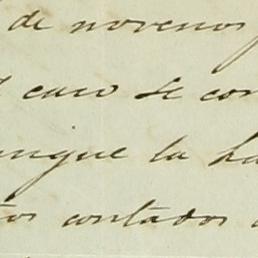 de novenos
caso se con
unque la ha
tos contados